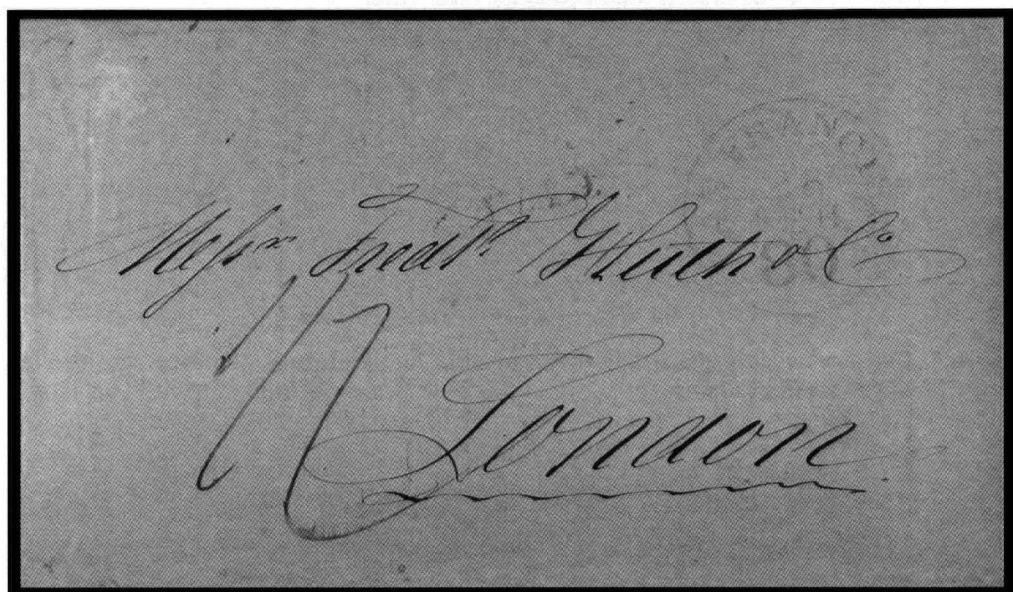 Messrs Fredk Huth & Co
London